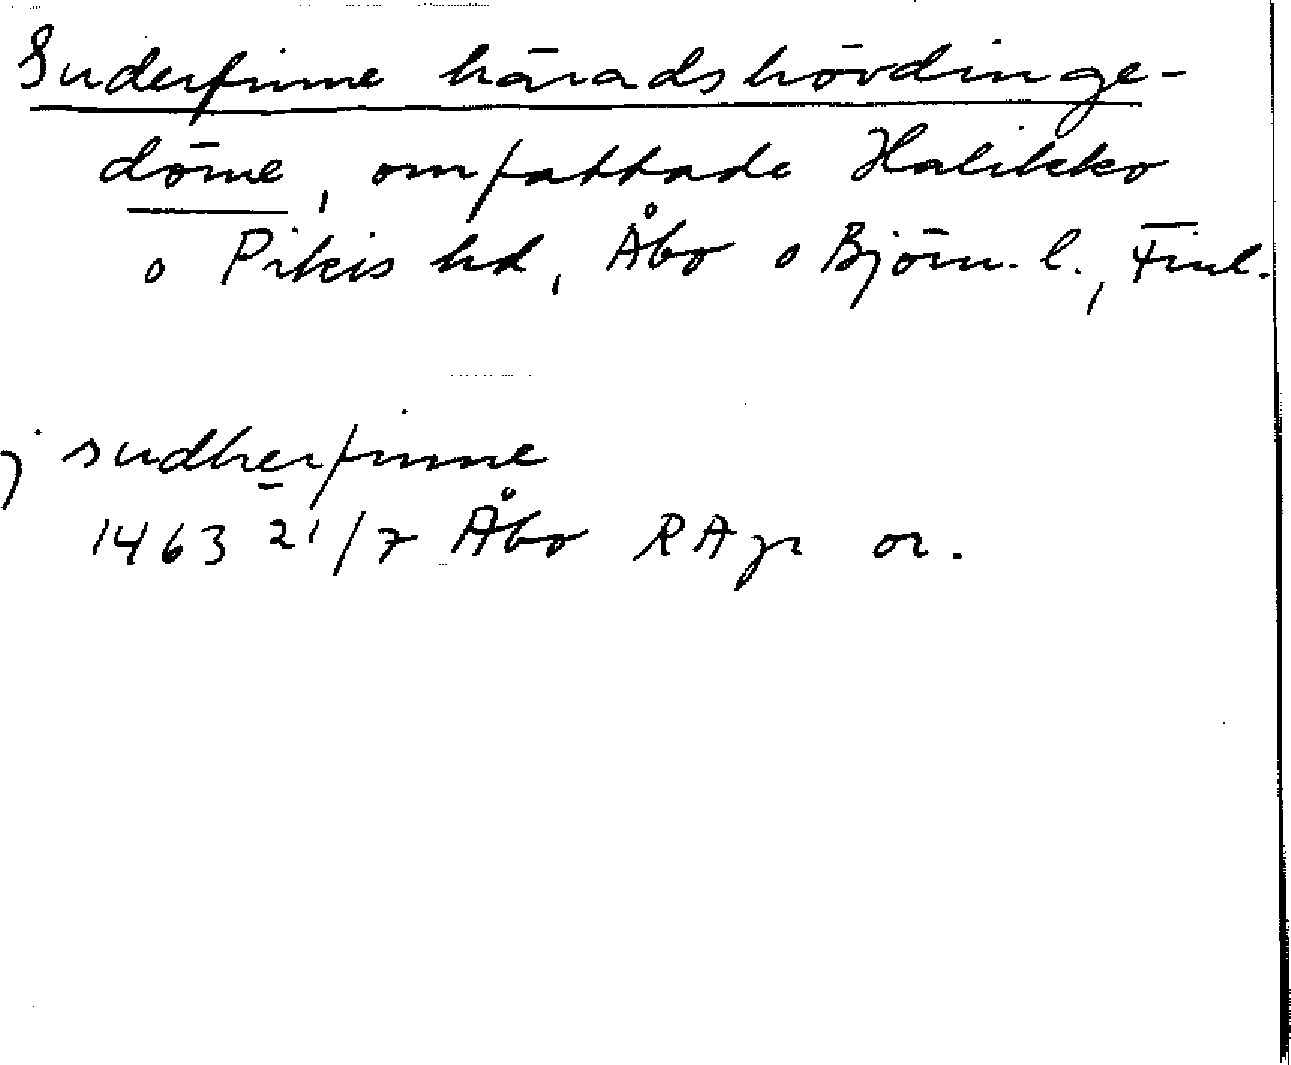 Suderfinne häradshövdinge-
döme, omfattade Halikko
o Pikis hd, Åbo o Björn. l., Finl.
j sudherfinne
1463 21/7 Åbo RAp or.